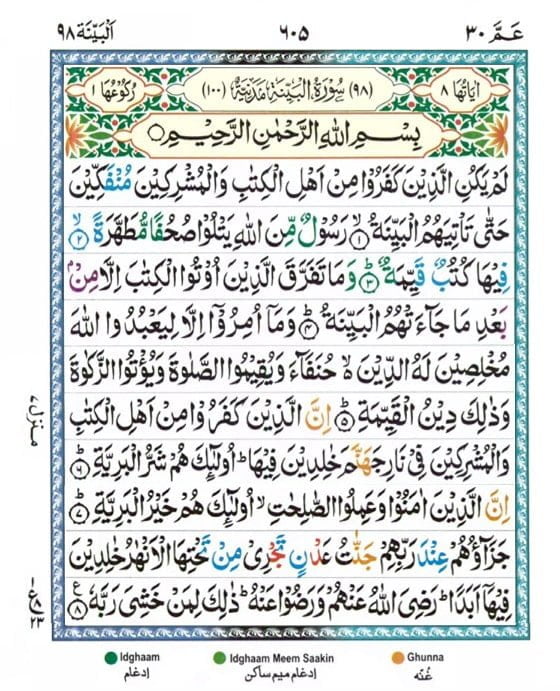 عَمَّ ٣٠
٦٠٥
اَلْبَيِّنَة ٩٨
اٰيَاتُهَا ٨
(٩٨) سُوْرَةُ الْبَيِّنَةِ مَدَنِيَّةٌ (١٠٠)
رُكُوْعُهَا ١
بِسْمِ اللهِ الرَّحْمٰنِ الرَّحِيْمِ ۝
لَمْ يَكُنِ الَّذِيْنَ كَفَرُوْا مِنْ اَهْلِ الْكِتٰبِ وَالْمُشْرِكِيْنَ مُنْفَكِّيْنَ
حَتّٰى تَاْتِيَهُمُ الْبَيِّنَةُ ۙ﴿١﴾ رَسُوْلٌ مِّنَ اللهِ يَتْلُوْا صُحُفًا مُّطَهَّرَةً ۙ﴿٢﴾
فِيْهَا كُتُبٌ قَيِّمَةٌ ؕ﴿٣﴾ وَمَا تَفَرَّقَ الَّذِيْنَ اُوْتُوا الْكِتٰبَ اِلَّا مِنْۢ
بَعْدِ مَا جَآءَتْهُمُ الْبَيِّنَةُ ؕ﴿٤﴾ وَمَاۤ اُمِرُوْۤا اِلَّا لِيَعْبُدُوا اللهَ
مُخْلِصِيْنَ لَهُ الدِّيْنَ ۙ حُنَفَآءَ وَيُقِيْمُوا الصَّلٰوةَ وَيُؤْتُوا الزَّكٰوةَ
وَذٰلِكَ دِيْنُ الْقَيِّمَةِ ؕ﴿٥﴾ اِنَّ الَّذِيْنَ كَفَرُوْا مِنْ اَهْلِ الْكِتٰبِ
وَالْمُشْرِكِيْنَ فِيْ نَارِ جَهَنَّمَ خٰلِدِيْنَ فِيْهَا ؕ اُولٰٓئِكَ هُمْ شَرُّ الْبَرِيَّةِ ؕ﴿٦﴾
اِنَّ الَّذِيْنَ اٰمَنُوْا وَعَمِلُوا الصّٰلِحٰتِ ۙ اُولٰٓئِكَ هُمْ خَيْرُ الْبَرِيَّةِ ؕ﴿٧﴾
جَزَآؤُهُمْ عِنْدَ رَبِّهِمْ جَنّٰتُ عَدْنٍ تَجْرِيْ مِنْ تَحْتِهَا الْاَنْهٰرُ خٰلِدِيْنَ
فِيْهَاۤ اَبَدًا ؕ رَضِيَ اللهُ عَنْهُمْ وَرَضُوْا عَنْهُ ؕ ذٰلِكَ لِمَنْ خَشِيَ رَبَّهٗ ﴿٨﴾ ع
منزل ٧
٢٣
Idghaam
ادغام
Idghaam Meem Saakin
ادغام ميم ساكن
Ghunna
غُنّه